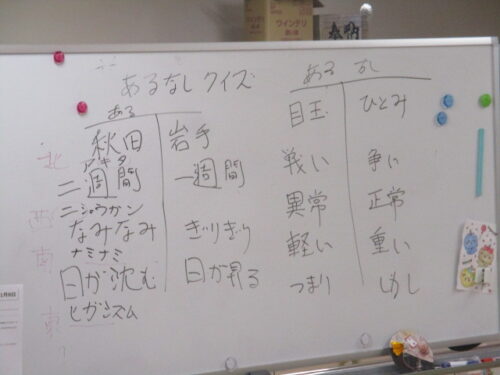 あるなしクイズ
ある
秋田 岩手
アキタ
二週間 一週間
ニシュウカン
なみなみ ぎりぎり
ナミナミ
日が沈む 日が昇る
ヒガシズム
ある なし
目玉 ひとみ
戦い 争い
異常 正常
軽い 重い
つまり しかし
北
西
南
東